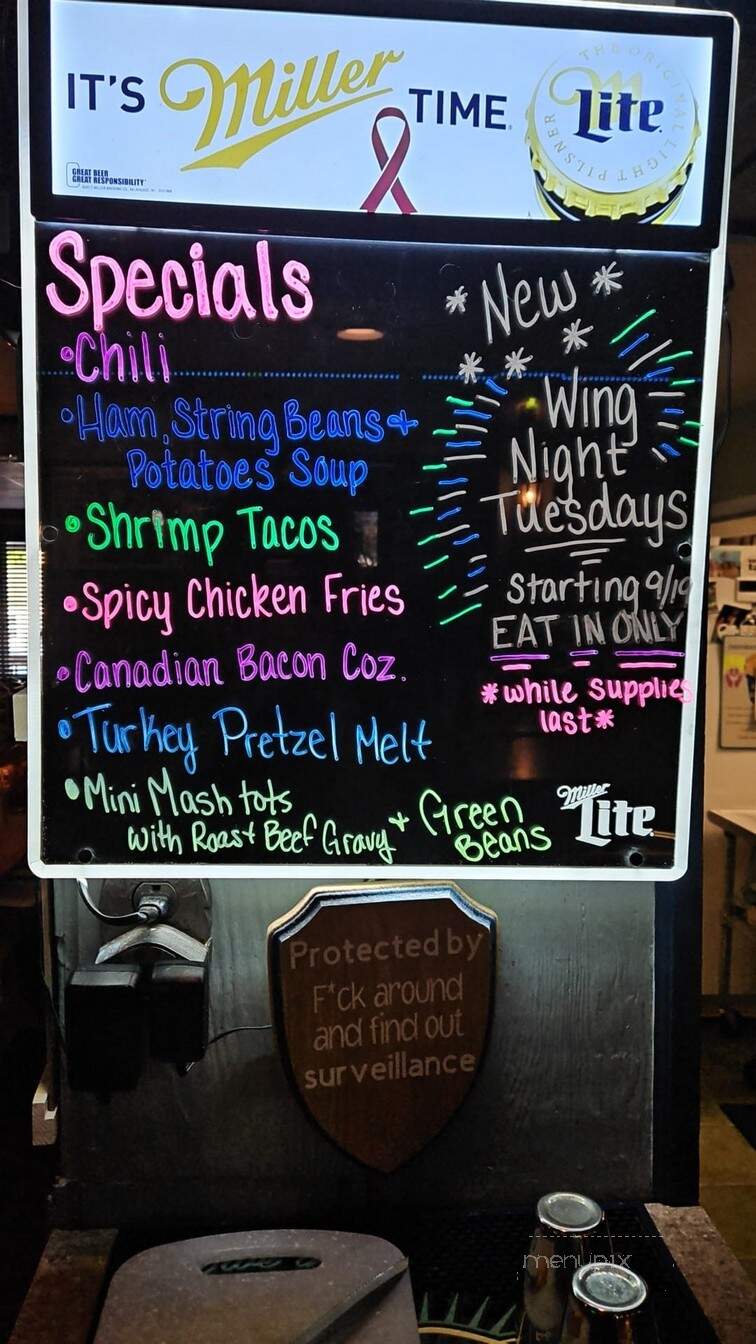 IT'S Miller TIME
THE ORIGINAL LIGHT PILSNER
Lite
GREAT BEER
GREAT RESPONSIBILITY
Specials
•Chili
•Ham, String Beans +
Potatoes Soup
•Shrimp Tacos
•Spicy Chicken Fries
•Canadian Bacon Coz.
•Turkey Pretzel Melt
•Mini Mash tots
with Roast Beef Gravy + Green
Beans
*New*
* * *
Wing
Night
Tuesdays
Starting 9/19
EAT IN ONLY
*while supplies
last*
Miller
Lite
Protected by
F*ck around
and find out
surveillance
menupix